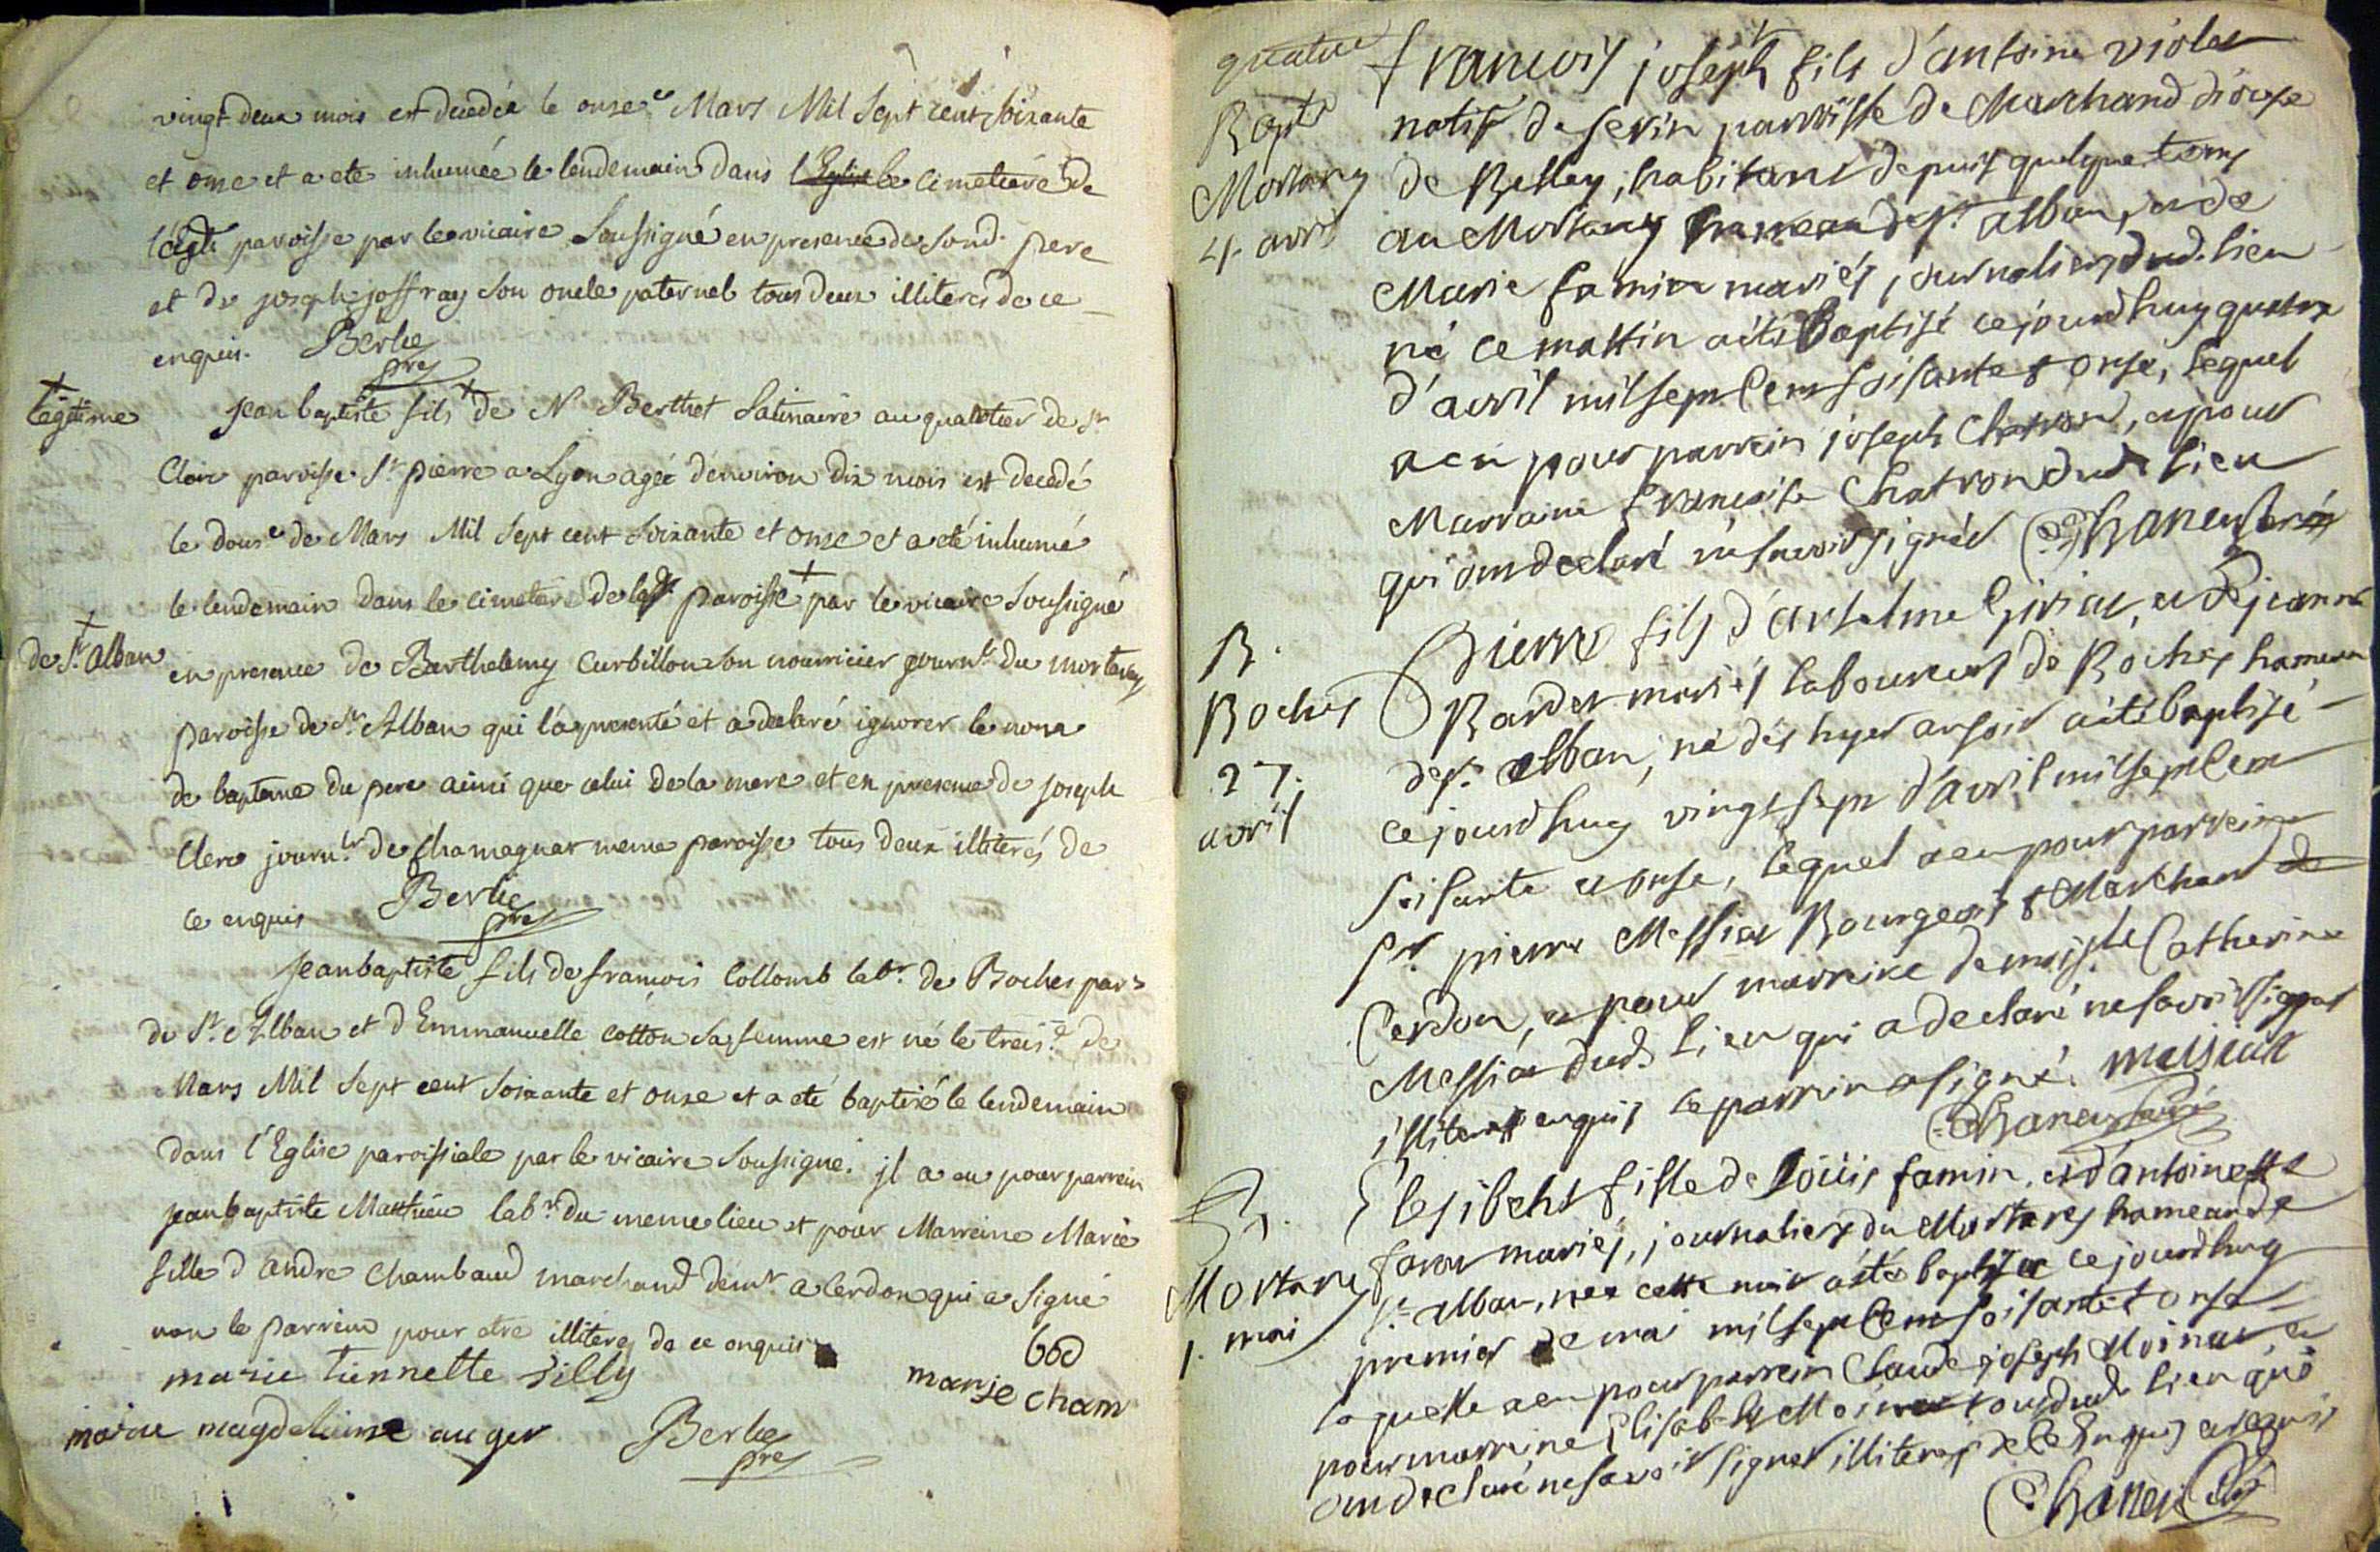 vingt deux mois est decedée le onze e Mars Mil Sept cent soixante
et onze et a eté inhumée le lendemain dans l'Eglise le cimetiere de
paroisse par le vicaire soussigné en presence de sond. pere
et de joseph joffray son oncle paternel tous deux illiterés de ce
enquis. Berlie
pre
+
legitime
jean baptiste fils + de N Berthet Satinaire au quartier de St
Clair paroisse St pierre a Lyon agée d'environ dix mois est decedé
le douze de Mars Mil Sept cent soixante et onze et a eté inhumé
le lendemain dans le cimetiere de lad. paroisse + par le vicaire soussigné
+
de St Alban
en presence de Barthelemy Curbillon son nourricier journr du mortarey
paroisse de St Alban qui l'a presenté et a declaré ignorer le nom
de bapteme du pere ainsi que celui de la mere et en presence de joseph
Clerc journlr de Chamagnat meme paroisse tous deux illiterés de
ce enquis Berlie
pre
Jean baptiste fils de francois Collomb labr. de Boches par
de St Alban et d'Emmanuelle cotton sa femme est né le treise de
Mars Mil Sept cent soixante et onze et a eté baptisé le lendemain
dans l'Eglise paroissiale par le vicaire soussigné. il a eu pour parrein
jean baptiste Matthieu labr. du meme lieu et pour Marreine Marie
fille d'andre Chambaud marchand demt. a Cerdon qui a signé
non le parrein pour etre illiteré de ce enquis
marie tiennette silly
bod
marje cham
marie magdeleine auger Berlie
pre
quatre
francois joseph fils d'antoine violet
Bapte
natif de serin parroisse de Marchand diocese
Mortarey
de Belley, habitant depuis quelque tems
4. avril
au Mortarey hameau de St. alban, et de
Marie famin mariés, journaliers dud. lieu
né ce mattin a été baptisé cejourdhuy quatre
d'avril mil sept cent soisante & onse, lequel
a eu pour parrein joseph Chatron, et pour
Marraine francoise Chatron dud. lieu
qui ont declaré ne savoir signer
B.
Pierre fils d'antelme Giriat, et de jeanne
Boches
Bardet mariés laboureurs de Boches hameau
27.
de St. alban, né dés hyer au soir a été baptisé
avril
cejourdhuy vingt sept d'avril mil sept cent
soisante et onse, lequel a eu pour parrein
Sr. pierre Messiat Bourgeois & Marchand de
Cerdon, et pour marreine demoislle Catherine
Messiat dud. lieu qui a declaré ne savoir signer
illiteré enquis le parrein a signé. messiat
B.
Elesibeht fille de Loüis famin, et d'antoinette
Mortarey
favre mariés, journaliers du Mortarey hameau de
1. mai
St. alban, née cette nuit a été baptisée cejourdhuy
premier de mai mil sept cent soisante & onse
laquelle a eu pour parrein Claude joseph Moinat et
pour marreine Elisabeth Moinat tous dud. lieu qui
ont declaré ne savoir signer illiterés de ce enquis et requis